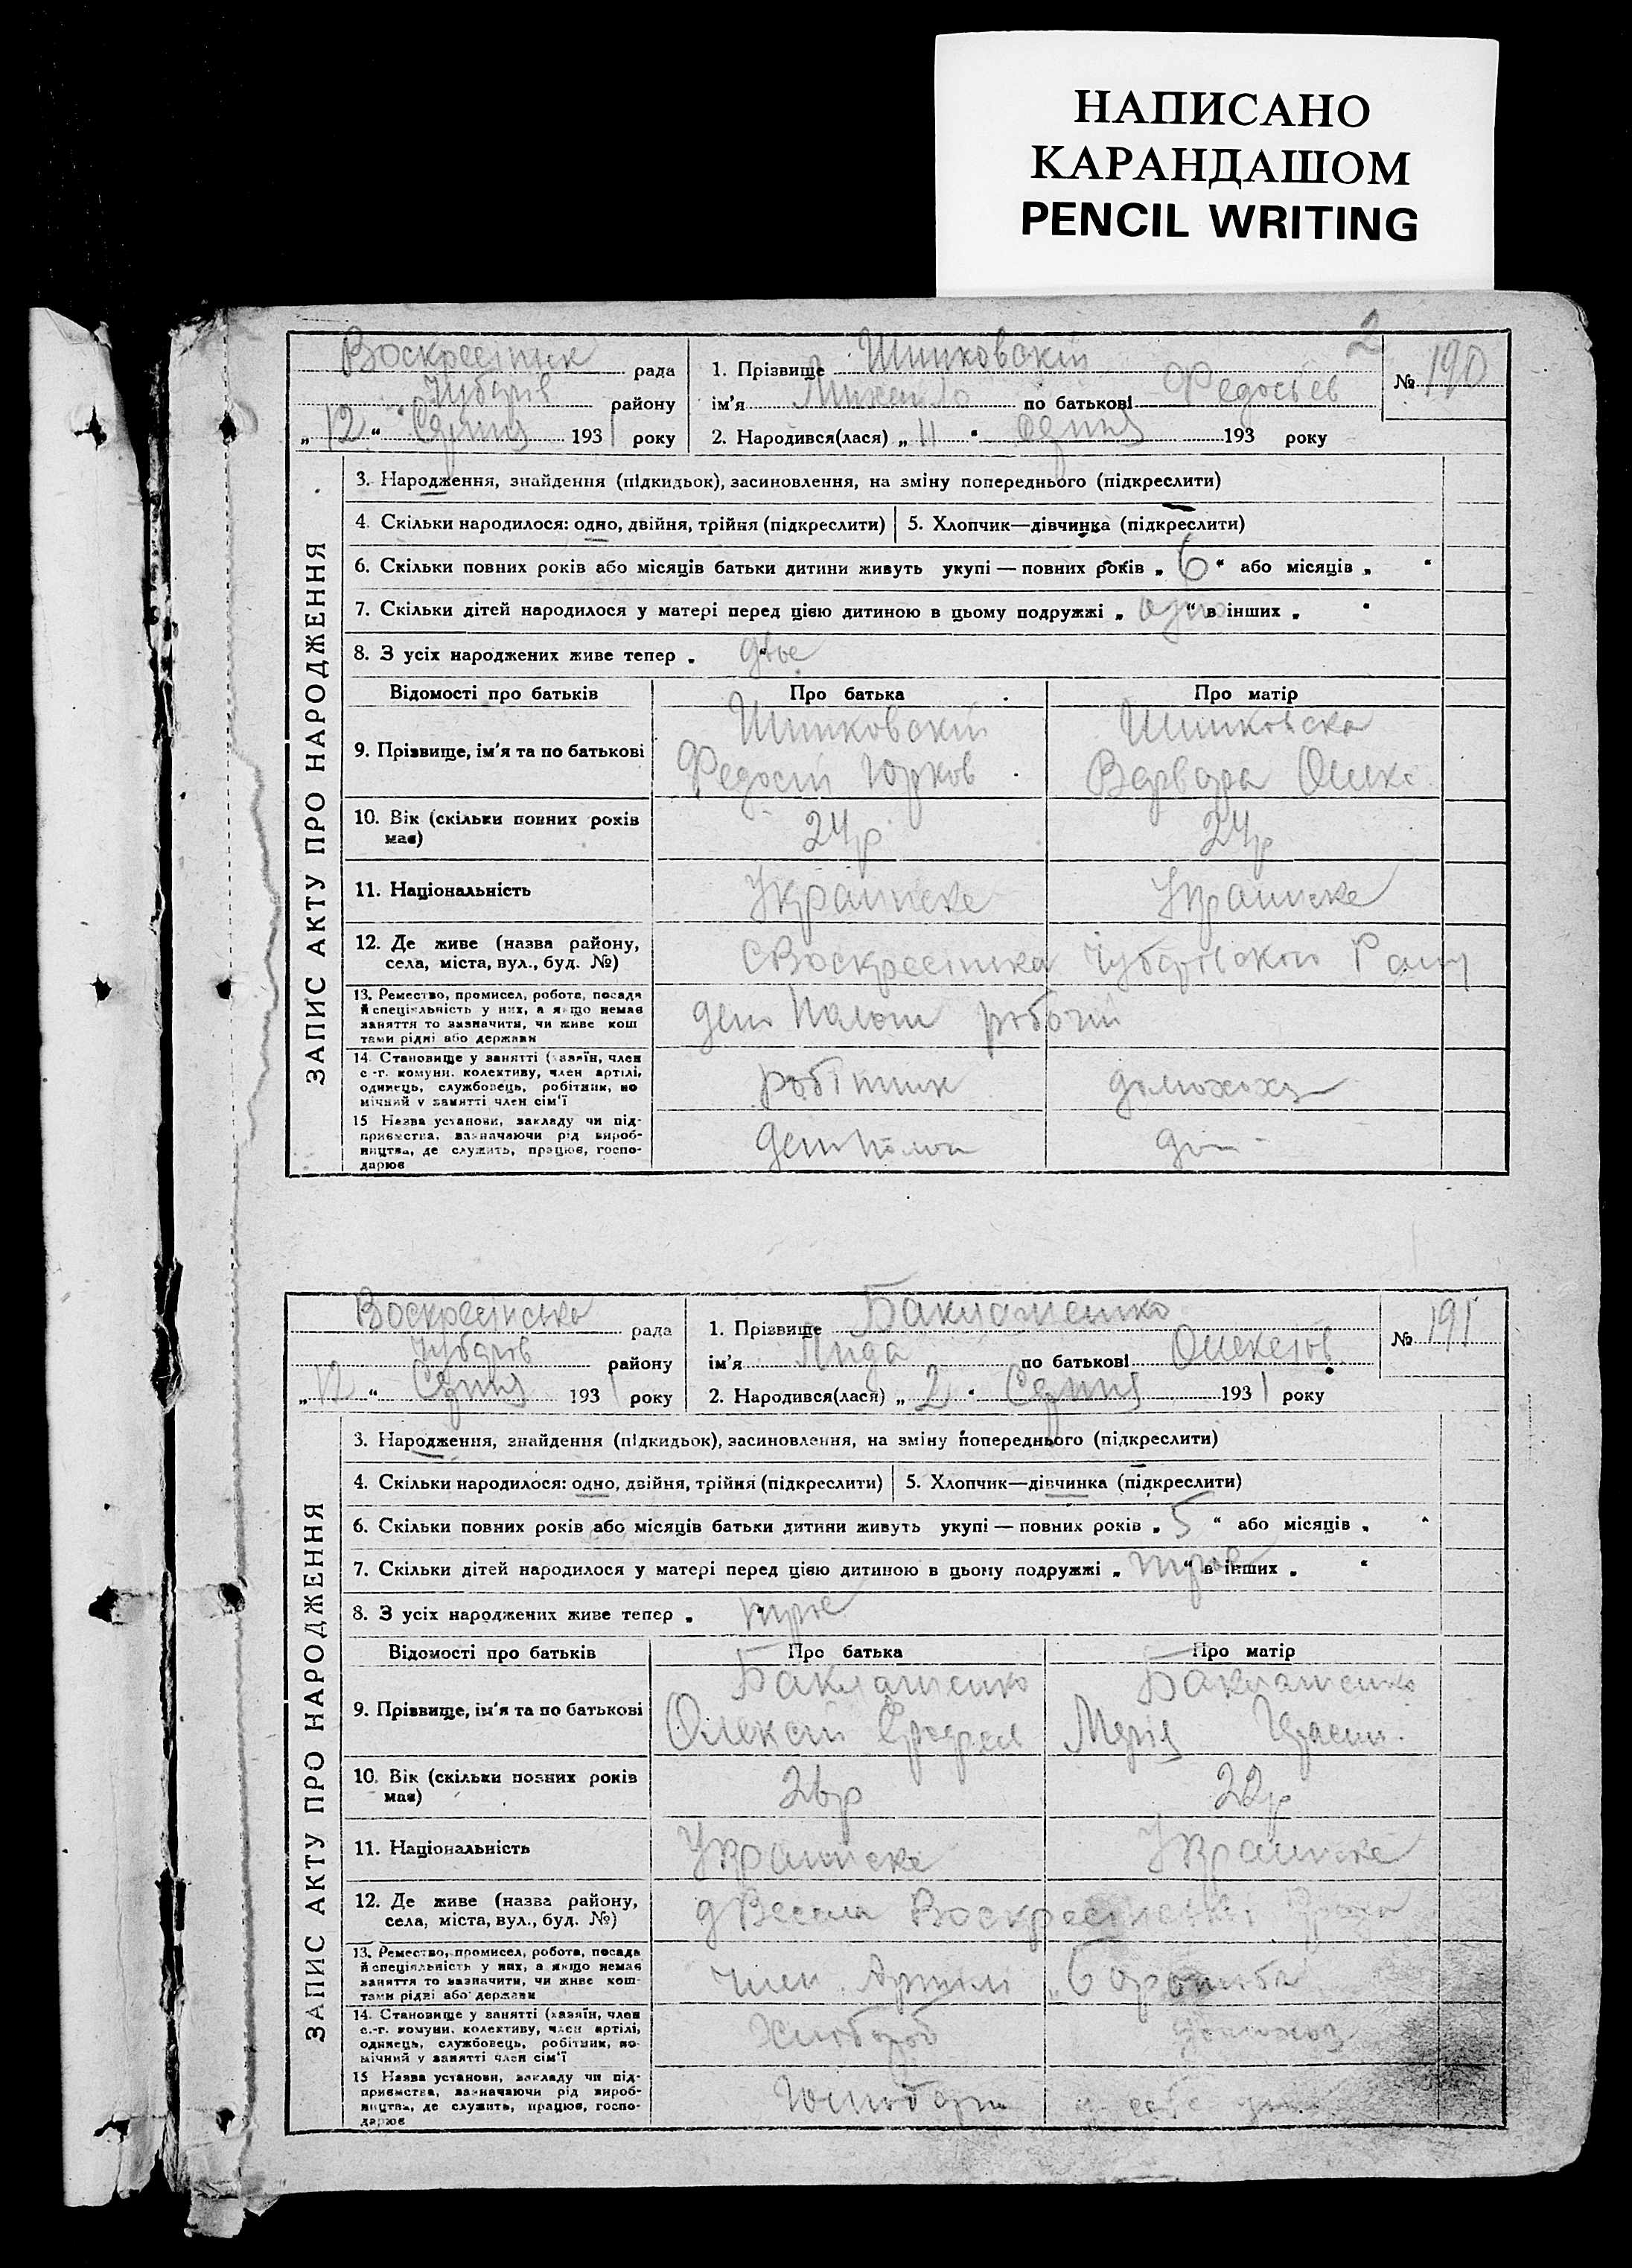 НАПИСАНО
КАРАНДАШОМ
PENCIL WRITING
2
Воскресіник рада
Чубарів району
„12“ Сдння 1931 року
1. Прізвище Шинковскій
ім'я Михайло по батькові Федосьев
№ 190
2. Народився(лася) „11“ Сдння 193 року
ЗАПИС АКТУ ПРО НАРОДЖЕННЯ
3. Народження, знайдення (підкидьок), засиновлення, на зміну попереднього (підкреслити)
4. Скільки народилося: одно, двійня, трійня (підкреслити) 5. Хлопчик—дівчинка (підкреслити)
6. Скільки повних років або місяців батьки дитини живуть укупі — повних років „6“ або місяців „ “
7. Скільки дітей народилося у матері перед цією дитиною в цьому подружжі „одно“ в інших „ “
8. З усіх народжених живе тепер „двое
Відомості про батьків Про батька Про матір
9. Прізвище, ім'я та по батькові
Шинковскій Шинковска
Федосій Юрков Варвара Олекс
10. Вік (скільки повних років має) 24р 24р
11. Національність Украинске Украинске
12. Де живе (назва району, села, міста, вул., буд. №)
с Воскресінка Чубарівского Району
13. Ремество, промисел, робота, посада й спеціяльність у них, а якщо немає заняття то зазначити, чи живе коштами рідні або держави
робочій
14. Становище у занятті (хазяїн, член с.-г. комуни, колективу, член артілі, одинець, службовець, робітник, помічний у занятті член сім'ї
робітник домохоз
15 Назва установи, закладу чи підприємства, зазначаючи рід виробництва, де служить, працює, господарює
Воскресінська рада
Чубарів району
„12“ Сдння 1931 року
1. Прізвище Баклашенко
ім'я Лида по батькові Олексіов
№ 191
2. Народився(лася) „2“ Сдння 1931 року
ЗАПИС АКТУ ПРО НАРОДЖЕННЯ
3. Народження, знайдення (підкидьок), засиновлення, на зміну попереднього (підкреслити)
4. Скільки народилося: одно, двійня, трійня (підкреслити) 5. Хлопчик—дівчинка (підкреслити)
6. Скільки повних років або місяців батьки дитини живуть укупі — повних років „5“ або місяців „ “
7. Скільки дітей народилося у матері перед цією дитиною в цьому подружжі „ “ в інших „ “
8. З усіх народжених живе тепер „трое
Відомості про батьків Про батька Про матір
9. Прізвище, ім'я та по батькові
Баклашенко Баклашенко
Олексій Марія Герасим.
10. Вік (скільки повних років має) 26р 22р
11. Національність Украинске Украинске
12. Де живе (назва району, села, міста, вул., буд. №)
д Весела Воскресінскі
13. Ремество, промисел, робота, посада й спеціяльність у них, а якщо немає заняття то зазначити, чи живе коштами рідні або держави
член Артіли Боротьба
14. Становище у занятті (хазяїн, член с.-г. комуни, колективу, член артілі, одинець, службовець, робітник, помічний у занятті член сім'ї
Хлибороб домохоз
15 Назва установи, закладу чи підприємства, зазначаючи рід виробництва, де служить, працює, господарює